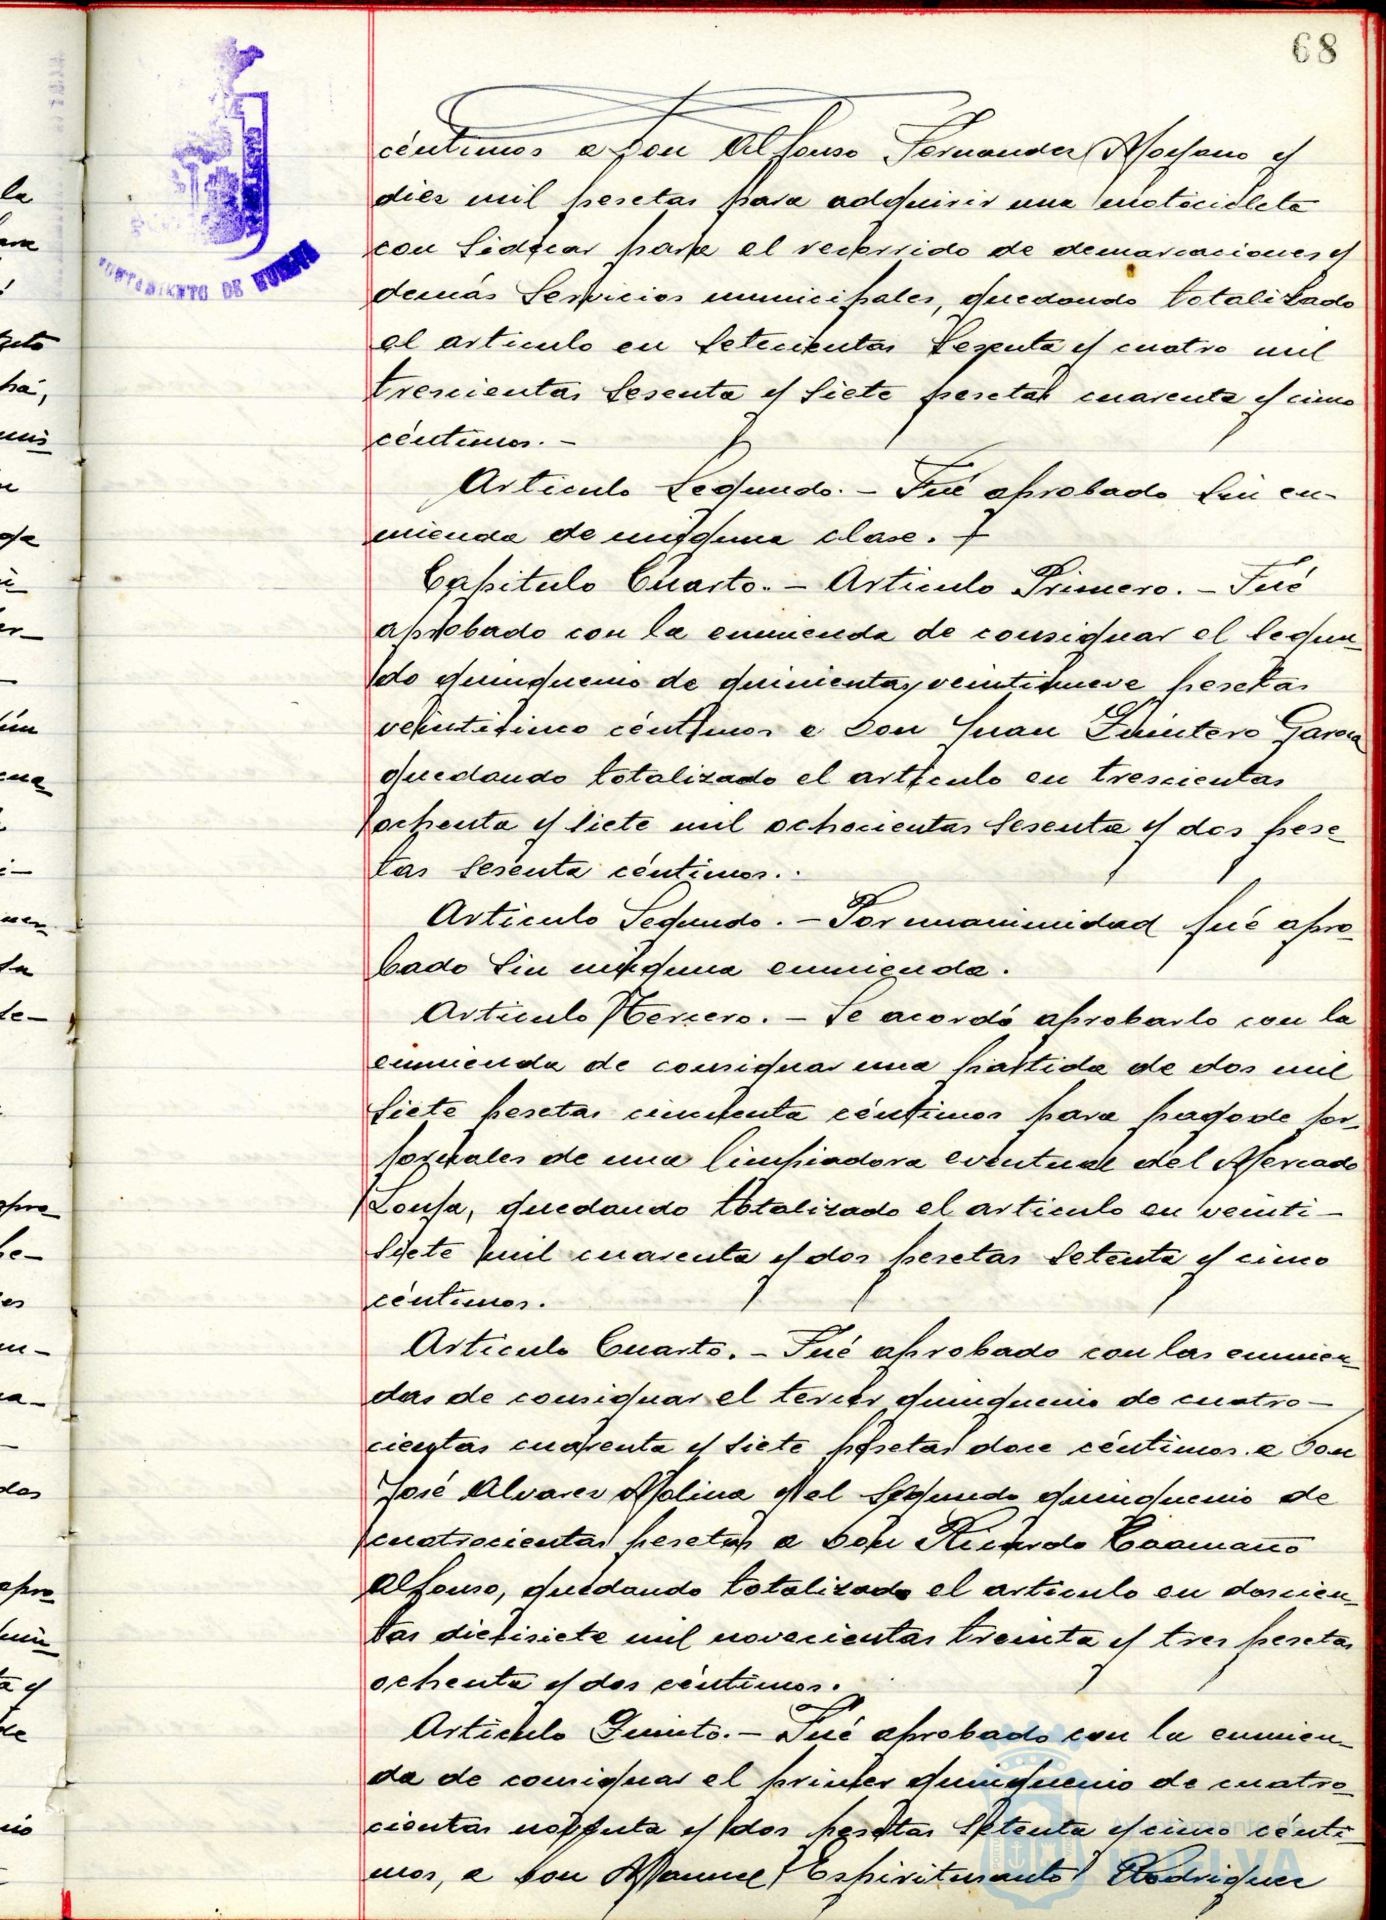 68
céntimos a Don Alfonso Fernandez Moyano y
diez mil pesetas para adquirir una motocicleta
con Sidecar para el recorrido de demarcaciones y
demás Servicios municipales, quedando totalizado
el articulo en Setecientas Sesenta y cuatro mil
trescientas Sesenta y Siete pesetas cuarenta y cinco
céntimos.-
Articulo Segundo.- Fué aprobado Sin en-
mienda de ninguna clase.-
Capitulo Cuarto.- Articulo Primero.- Fué
aprobado con la enmienda de consignar el Segun-
do quinquenio de quinientas veintinueve pesetas
veinticinco céntimos a Don Juan Quintero Garcia
quedando totalizado el articulo en trescientas
ochenta y Siete mil ochocientas Sesenta y dos pese-
tas sesenta céntimos.
Articulo Segundo.- Por unanimidad fué apro-
bado Sin ninguna enmienda.
Articulo Tercero.- Se acordó aprobarlo con la
enmienda de consignar una partida de dos mil
Siete pesetas cincuenta céntimos para pago de jor-
jornales de una limpiadora eventual del Mercado
Lonja, quedando totalizado el articulo en veinti-
Siete mil cuarenta y dos pesetas Setenta y cinco
céntimos.
Articulo Cuarto.- Fué aprobado con las enmien-
das de consignar el tercer quinquenio de cuatro-
cientas cuarenta y Siete pesetas doce céntimos a Don
José Alvarez Molina y el Segundo quinquenio de
cuatrocientas pesetas a Don Ricardo Caamaño
Alfonso, quedando totalizado el articulo en doscien-
tas diecisiete mil novecientas treinta y tres pesetas
ochenta y dos céntimos.
Articulo Quinto.- Fué aprobado con la enmien-
da de consignar el primer quinquenio de cuatro-
cientas noventa y dos pesetas Setenta y cinco cénti-
mos, a Don Manuel Espiritusanto Rodriguez
AYUNTAMIENTO DE HUELVA